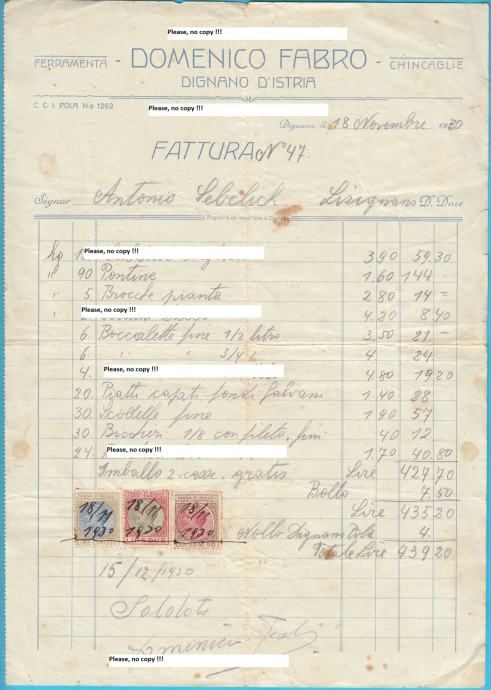 Please, no copy !!!
FERRAMENTA - DOMENICO FABRO - CHINCAGLIE
DIGNANO D'ISTRIA
C. C. I. POLA N.o 1262
Please, no copy !!!
Dignano, li 18 Novembre 1930
FATTURA N° 47.
Signor Antonio Sebelich Lisignano D. Dare
Pagabile ed inscrittibile a Dignano
Please, no copy !!!
hg 3.90 59.30
" 90 Pontine 1.60 144 -
" 5 Brocche pianta 2.80 14 -
Please, no copy !!!
" 4.20 8.40
6 Boccalette fine 1/2 litro 3.50 21 -
6 " " 3/4 4 24
Please, no copy !!!
4. 4.80 19.20
20 Piatti capati fondi Galvani 1.40 28
30 Scodelle fine 1.90 57
30 Bicchieri 1/8 con fileto, fini 40 12
Please, no copy !!!
24 1.70 40.80
Imballo 2 casse, gratis Lire 427.70
Bollo 7.50
Lire 435.20
Nollo Dignano Pola 4.
Totale Lire 439.20
TASSA DI BOLLO
TASSA DI BOLLO
TASSA DI BOLLO
18/11 1930
18/11 1930
18/11 1930
15/12/1930
Saldato
Domenico
Please, no copy !!!